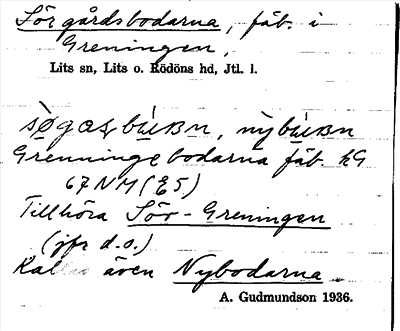 Sörgårdsbodarna, fäb. i
Greningen,
Lits sn, Lits o. Rödöns hd, Jtl. l.
nybùᴇʙn
Grenningebodarna fäb. hG
67 NM (E5)
Tillhöra Sör-Greningen
(jfr d.o.)
Kallas även Nybodarna
A. Gudmundson 1936.